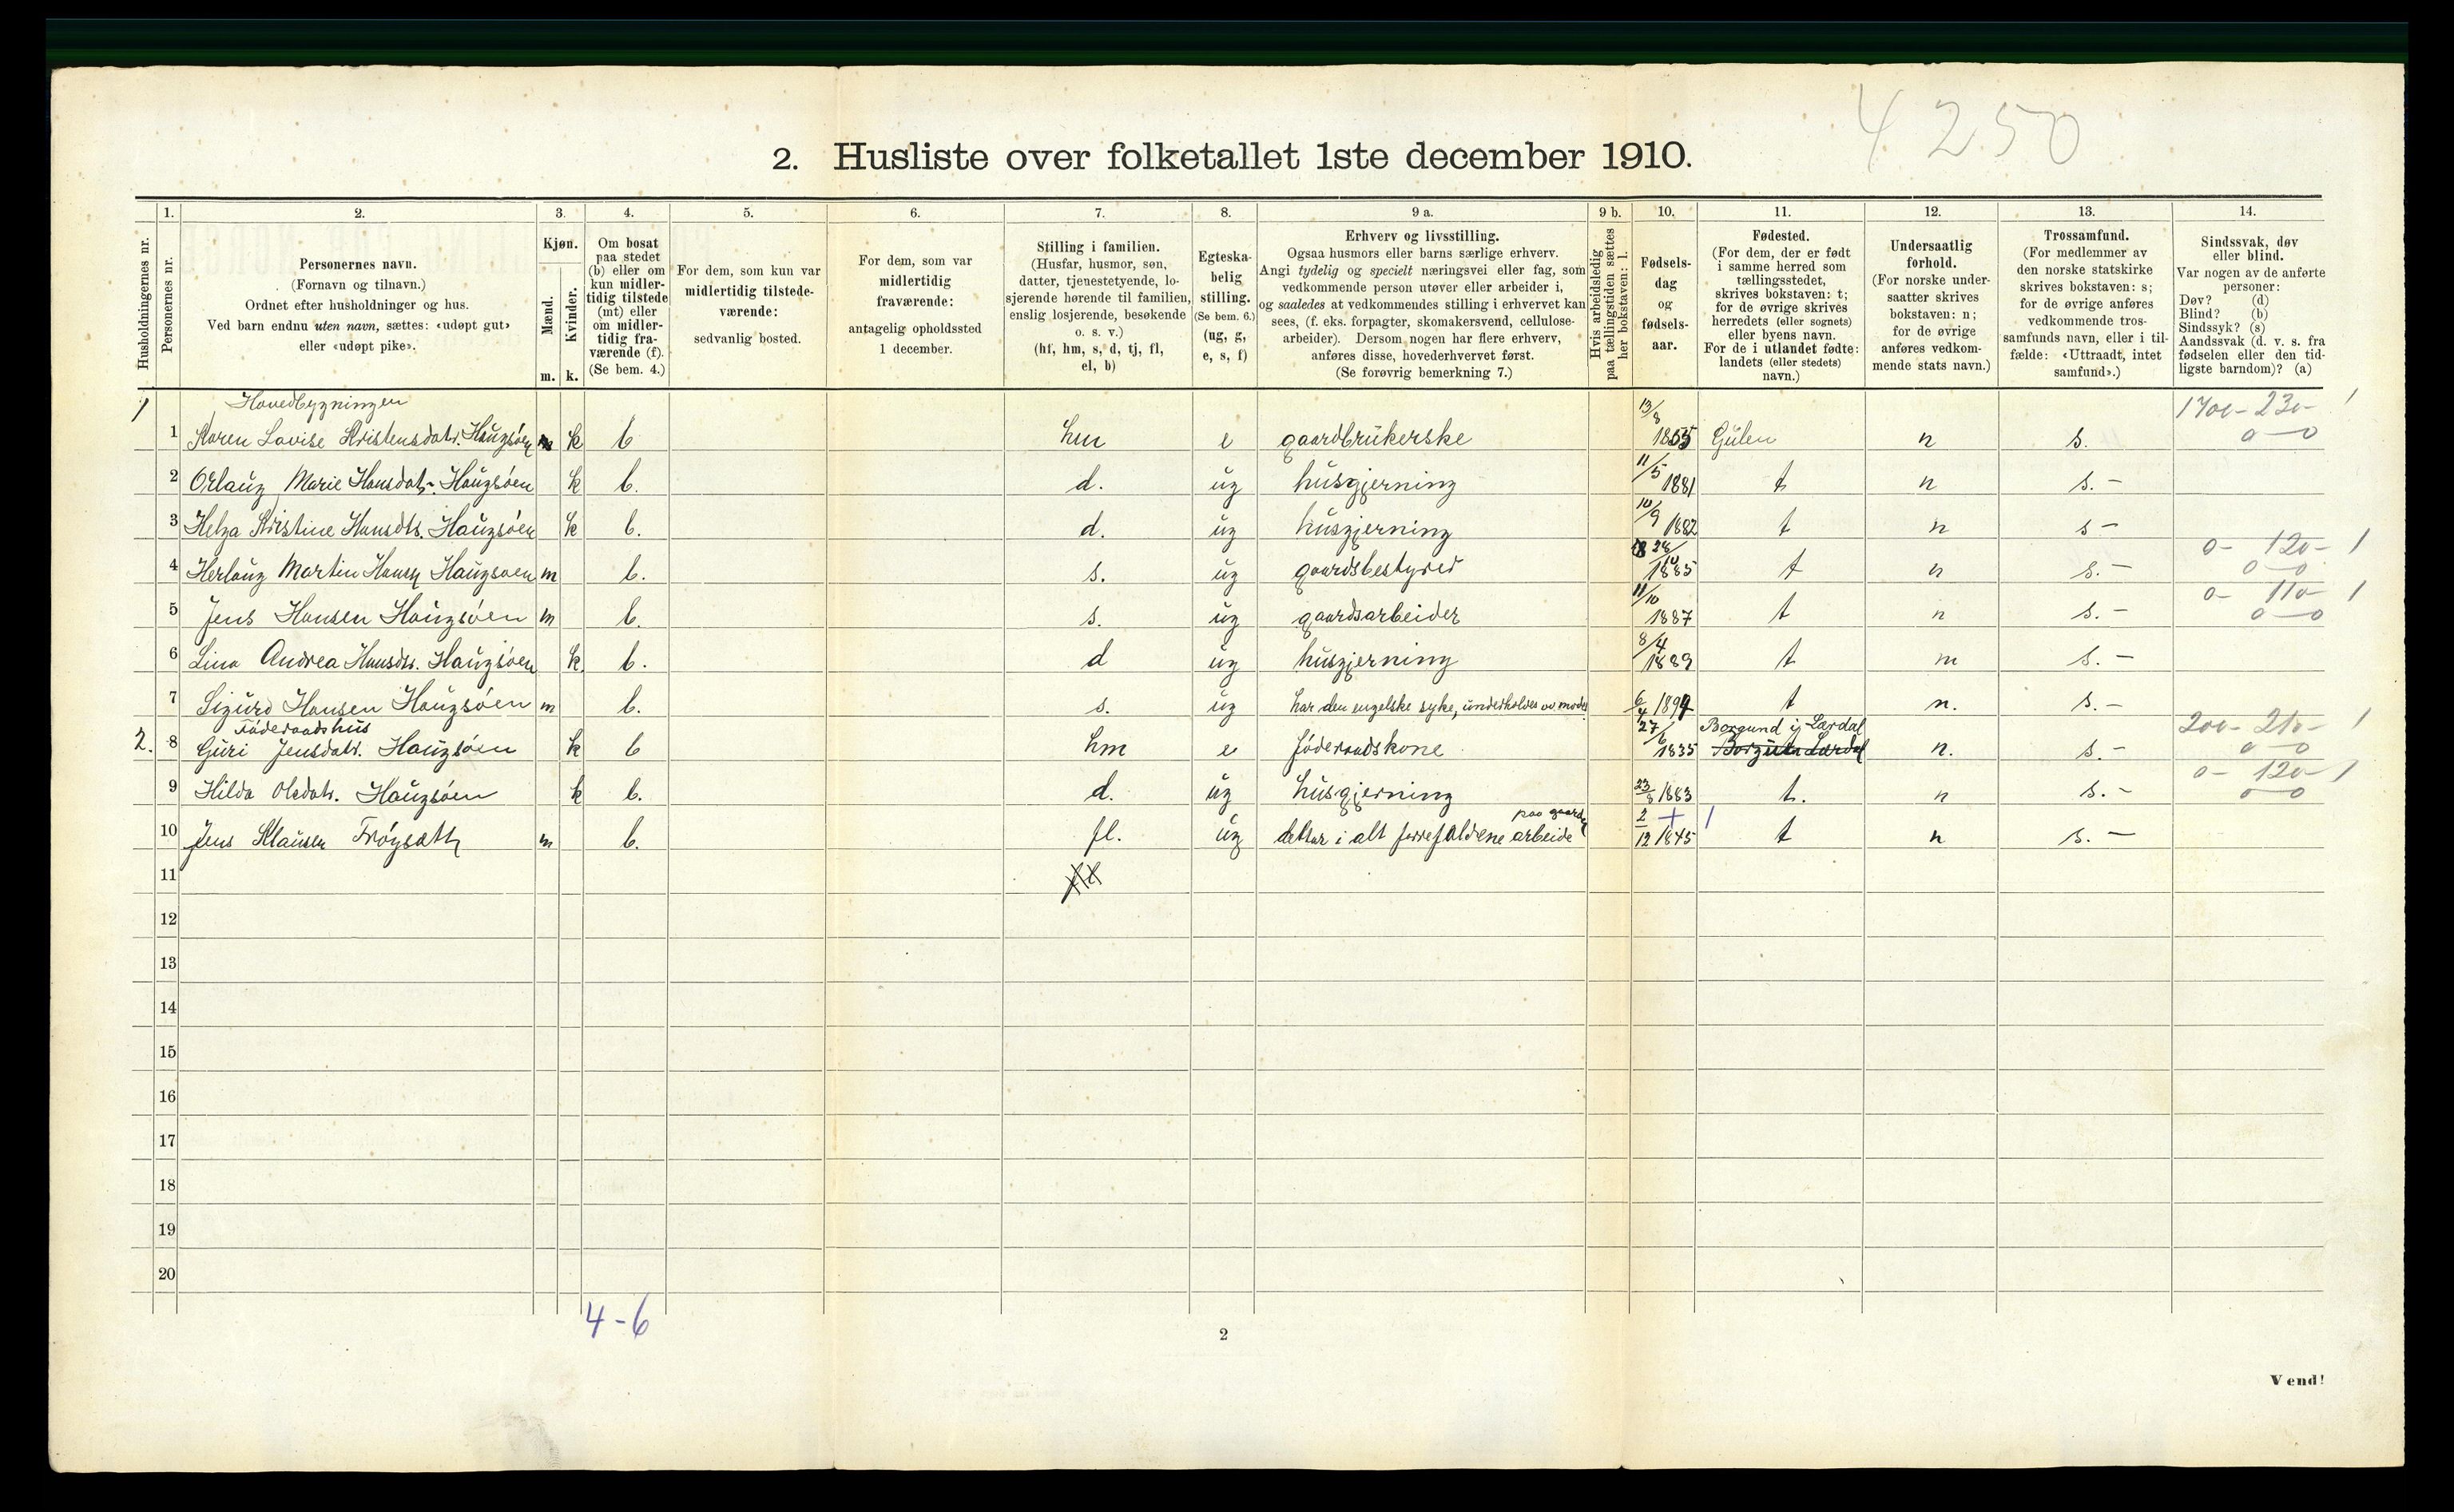 4250
2. Husliste over folketallet 1ste december 1910.
Husholdningernes nr.
1.
Personernes nr.
2.
Personernes navn.
(Fornavn og tilnavn.)
Ordnet efter husholdninger og hus.
Ved barn endnu uten navn, sættes: «udøpt gut»
eller «udøpt pike».
3.
Kjøn.
Mænd.
Kvinder.
m. k.
4.
Om bosat
paa stedet
(b) eller om
kun midler-
tidig tilstede
(mt) eller
om midler-
tidig fra-
værende (f).
(Se bem. 4.)
5.
For dem, som kun var
midlertidig tilstede-
værende:
sedvanlig bosted.
6.
For dem, som var
midlertidig
fraværende:
antagelig opholdssted
1 december.
7.
Stilling i familien.
(Husfar, husmor, søn,
datter, tjenestetyende, lo-
sjerende hørende til familien,
enslig losjerende, besøkende
o. s. v.)
(hf, hm, s, d, tj, fl,
el, b)
8.
Egteska-
belig
stilling.
(Se bem. 6.)
(ug, g,
e, s, f)
9 a.
Erhverv og livsstilling.
Ogsaa husmors eller barns særlige erhverv.
Angi tydelig og specielt næringsvei eller fag, som
vedkommende person utøver eller arbeider i,
og saaledes at vedkommendes stilling i erhvervet kan
sees, (f. eks. forpagter, skomakersvend, cellulose-
arbeider). Dersom nogen har flere erhverv,
anføres disse, hovederhvervet først.
(Se forøvrig bemerkning 7.)
9 b.
Hvis arbeidsledig
paa tællingstiden sættes
her bokstaven: l.
10.
Fødsels-
dag
og
fødsels-
aar.
11.
Fødested.
(For dem, der er født
i samme herred som
tællingsstedet,
skrives bokstaven: t;
for de øvrige skrives
herredets (eller sognets)
eller byens navn.
For de i utlandet fødte:
landets (eller stedets)
navn.)
12.
Undersaatlig
forhold.
(For norske under-
saatter skrives
bokstaven: n;
for de øvrige
anføres vedkom-
mende stats navn.)
13.
Trossamfund.
(For medlemmer av
den norske statskirke
skrives bokstaven: s;
for de øvrige anføres
vedkommende tros-
samfunds navn, eller i til-
fælde: «Uttraadt, intet
samfund».)
14.
Sindssvak, døv
eller blind.
Var nogen av de anførte
personer:
Døv? (d)
Blind? (b)
Sindssyk? (s)
Aandssvak (d. v. s. fra
fødselen eller den tid-
ligste barndom)? (a)
1 Hovedbygningen 1700- 230- 1
1 Karen Lovise Kristensdatr. Haugsøen k b hm e gaardbrukerske 13/8 1855 Gulen n s. 0-0
2 Orlaug Marie Hansdatr. Haugsøen k b. d. ug husgjerning 11/5 1881 t n s.-
3 Helga Kristine Hansdtr. Haugsøen k b. d. ug husgjerning 10/9 1882 t n s-
0- 120- 1
4 Herlaug Martin Hansen Haugsøen m b. s. ug gaardsbestyrer 28/10 1885 t n s.- 0-0
0- 110- 1
5 Jens Hansen Haugsøen m b. s. ug gaardsarbeider 11/10 1887 t n s.- 0-0
6 Lina Andrea Hansdtr. Haugsøen k b. d ug husgjerning 8/4 1889 t n s.-
7 Sigurd Hansen Haugsøen m b. s. ug har den engelske syke, underholdes av moder 6/4 1894 t n. s.-
Føderaadshus Borgund i Lærdal 200- 210- 1
2. 8 Guri Jensdatr. Haugsøen k b hm e føderaadskone 27/6 1835 Borgund Lærdal n. s.- 0-0
0- 120- 1
9 Hilda Olsdatr. Haugsøen k b. d. ug husgjerning 23/8 1883 t. n s.- 0-0
paa gaarden
10 Jens Klausen Frøysætt m b. fl. ug deltar i alt forrefaldene arbeide 2/12 1845 + 1 t n s.-
11 fl
12
13
14
15
16
17
18
19
20
4-6
2
Vend!